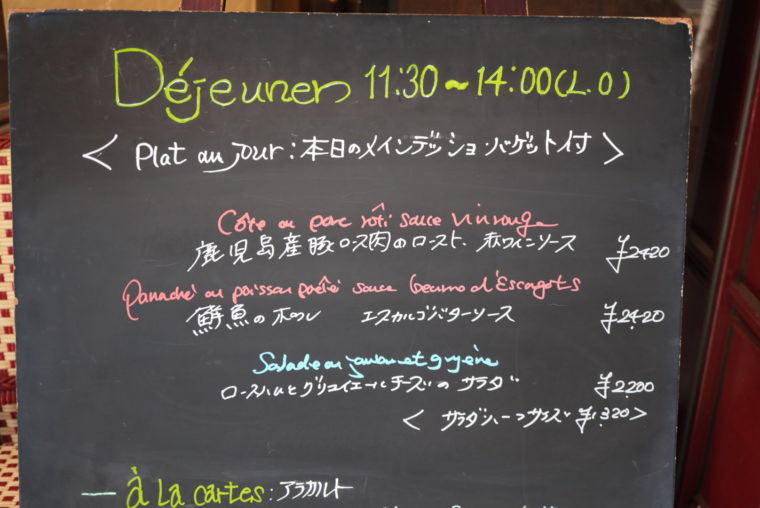 Déjeuner 11:30~14:00(L.O)
< Plat au Jour:本日のメインデッシュ・バゲット付 >
Côte au porc rôti sauce vin rouge
鹿児島産豚ロース肉のロースト、赤ワインソース ¥2420
Panaché au poisson poêlé sauce beurre d'Escargots
鮮魚のポワレ エスカルゴバターソース ¥2420
Salade au jambon et gruyère
ロースハムとグリュイエールチーズのサラダ ¥2,200
< サラダハーフサイズ ¥1,320>
— à La cartes:アラカルト